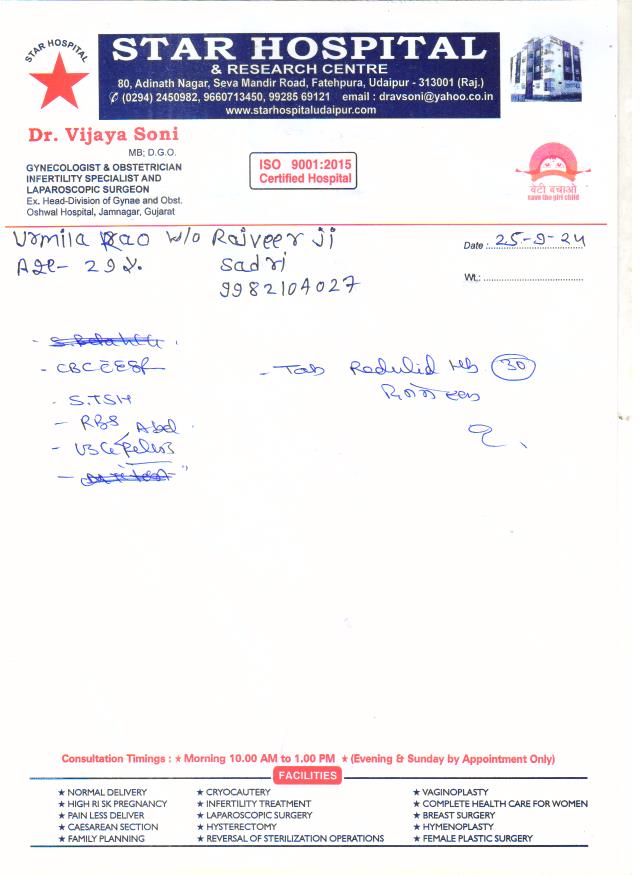 STAR HOSPITAL
STAR HOSPITAL
& RESEARCH CENTRE
80, Adinath Nagar, Seva Mandir Road, Fatehpura, Udaipur - 313001 (Raj.)
✆ (0294) 2450982, 9660713450, 99285 69121 email : dravsoni@yahoo.co.in
www.starhospitaludaipur.com
Dr. Vijaya Soni
MB; D.G.O.
GYNECOLOGIST & OBSTETRICIAN
INFERTILITY SPECIALIST AND
LAPAROSCOPIC SURGEON
Ex. Head-Division of Gynae and Obst.
Oshwal Hospital, Jamnagar, Gujarat
ISO 9001:2015
Certified Hospital
बेटी बचाओ
save the girl child
Urmila Rao w/o Rajveer Ji
Date : 25-9-24
Age- 29 Y. Sadri
Wt.:
9982104027
- CBC ESR
- Tab 30
- S.TSH
- RBS
Abd
Pelvis
Consultation Timings : ★ Morning 10.00 AM to 1.00 PM ★ (Evening & Sunday by Appointment Only)
FACILITIES
★ NORMAL DELIVERY ★ CRYOCAUTERY ★ VAGINOPLASTY
★ HIGH RISK PREGNANCY ★ INFERTILITY TREATMENT ★ COMPLETE HEALTH CARE FOR WOMEN
★ PAIN LESS DELIVER ★ LAPAROSCOPIC SURGERY ★ BREAST SURGERY
★ CAESAREAN SECTION ★ HYSTERECTOMY ★ HYMENOPLASTY
★ FAMILY PLANNING ★ REVERSAL OF STERILIZATION OPERATIONS ★ FEMALE PLASTIC SURGERY